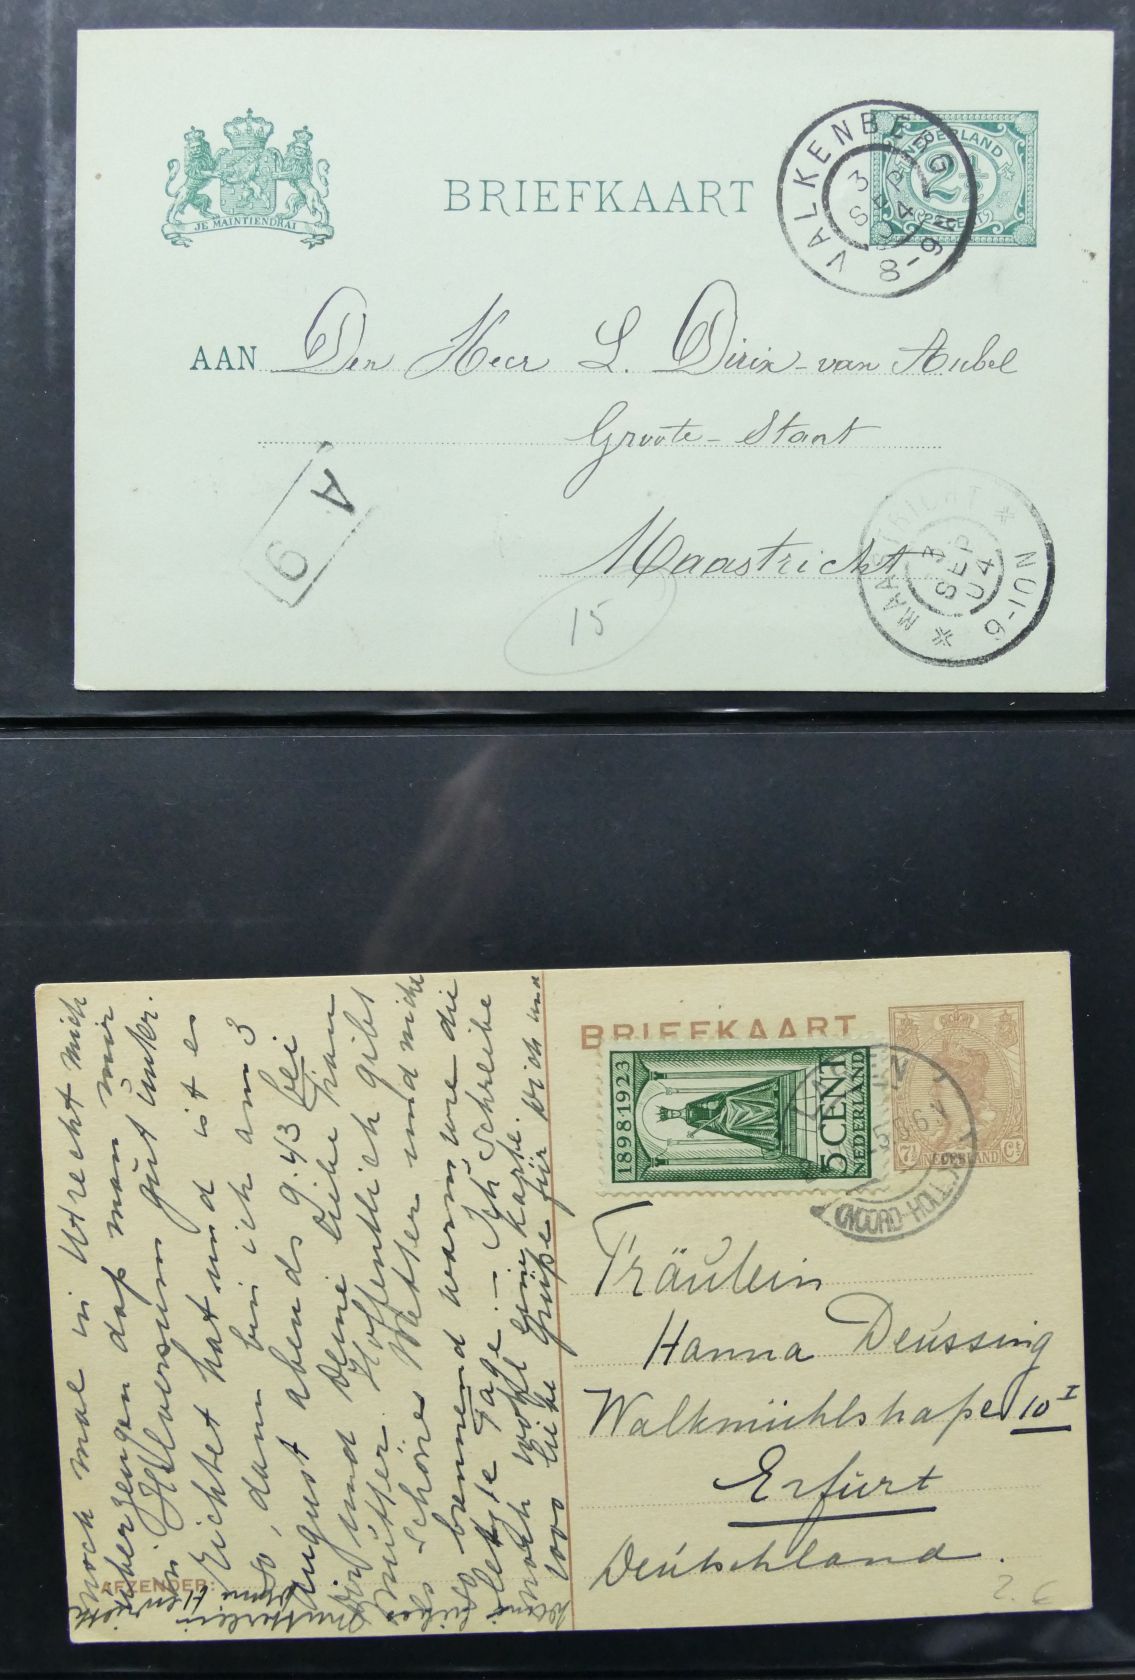 JE MAINTIENDRAI
BRIEFKAART
NEDERLAND
2½
CENT
VALKENBERG
3
SEP
04
8-9 N
AAN Den Heer L. Dirix-van Aubel
Groote-Staat
Maastricht
A
9
15
MAASTRICHT
3
SEP
04
BRIEFKAART
1898·1923
5 CENT
NEDERLAND
7½ NEDERLAND Ct
(NOORD-HOLL.)
Fräulein
Hanna Deussing
Walkmühlstraße 10 I
Erfurt
Deutschland.
AFZENDER:
noch mal in Utrecht mich
überzeugen daß man mir
in Hilversum gut unter
richtet hat und ist es
so, dann bin ich am 3
August abends 9.43 bei
Dir und Deine liebe
Mutter. Hoffentlich gibt
es schönes Wetter und nicht
so brennend warm wie die
letzte Tage. - Ich schreibe
noch wohl eine Karte.
1000 liebe Grüße für Dich und
2.6